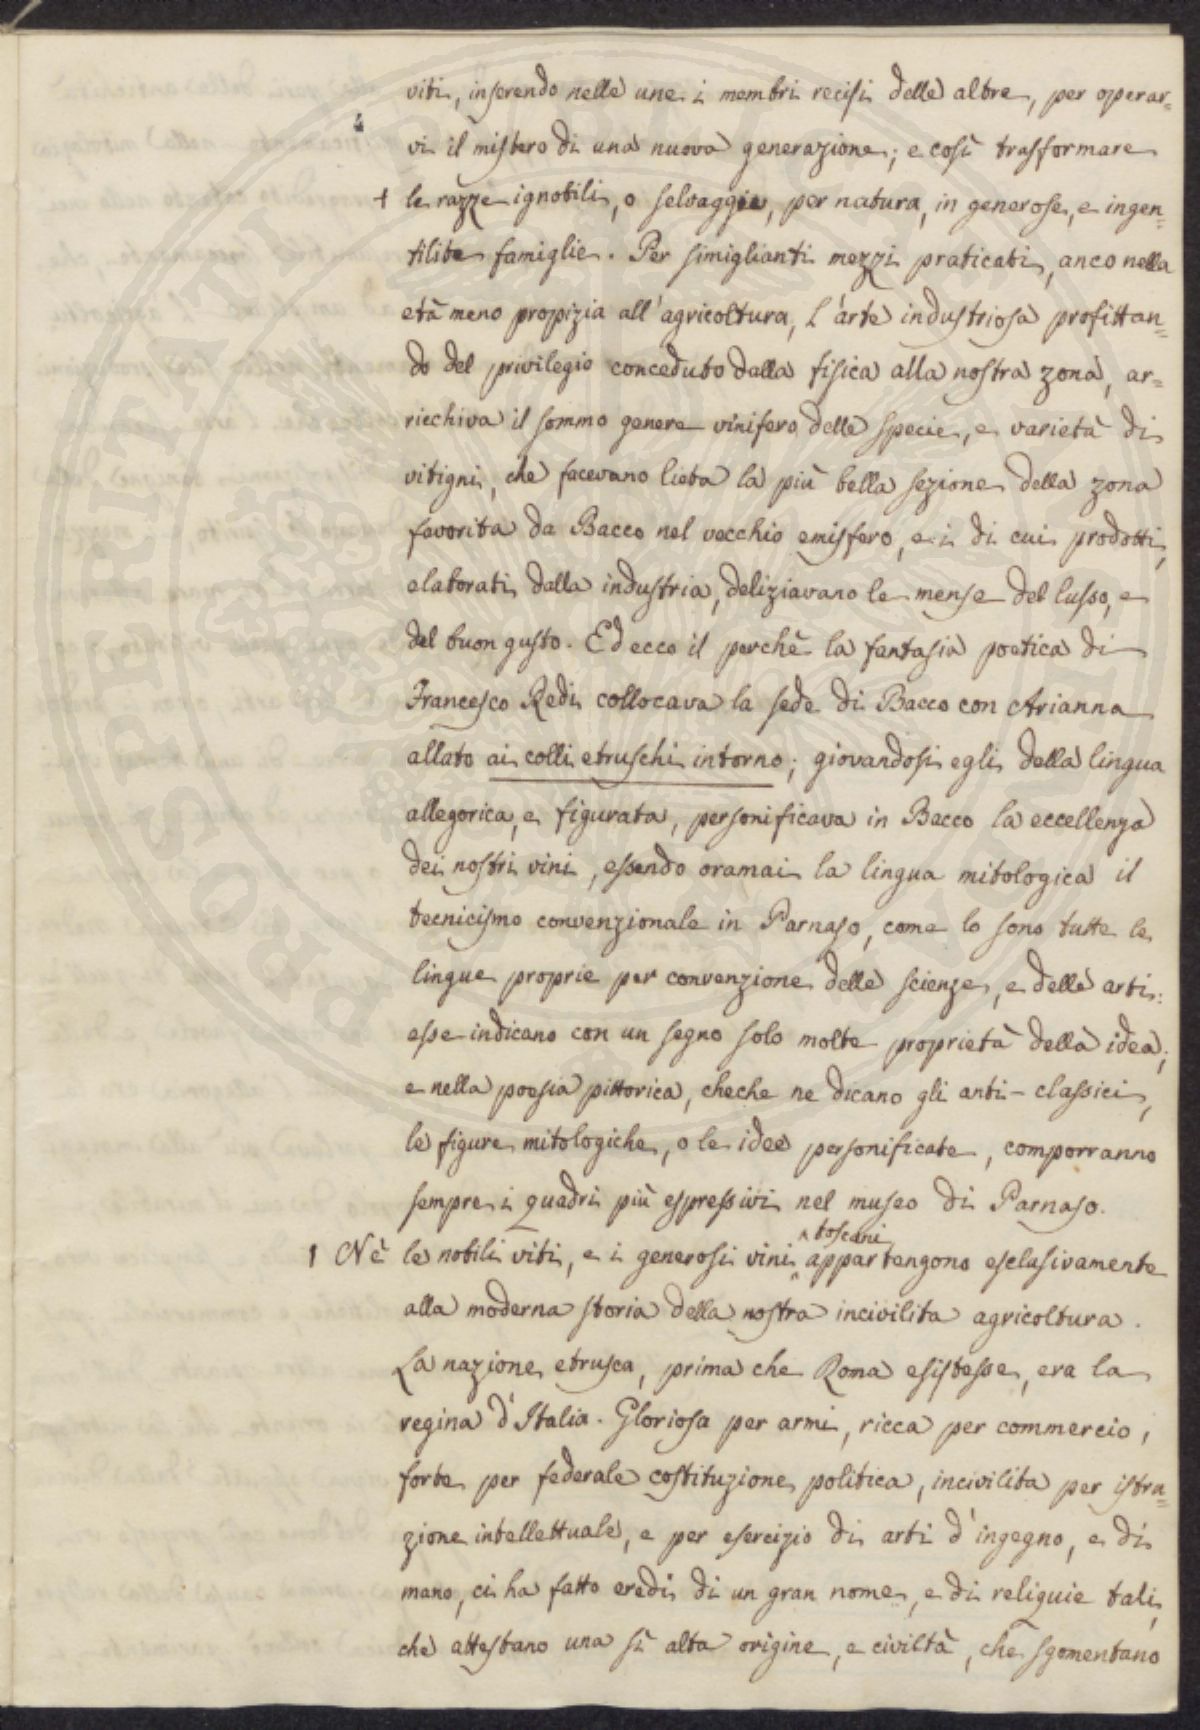 viti, inserendo nelle une i membri recisi delle altre, per operar=
vi il mistero di una nuova generazione; e così trasformare
+ le razze ignobili, o selvaggie, per natura, in generose, e ingen=
tilite famiglie. Per simiglianti mezzi praticati, anco nella
età meno propizia all'agricoltura, l'arte industriosa profittan=
do del privilegio conceduto dalla fisica alla nostra zona, ar=
ricchiva il sommo genere vinifero delle specie, e varietà di
vitigni, che facevano lieta la più bella sezione della zona
favorita da Bacco nel vecchio emisfero, e i di cui prodotti,
elaborati dalla industria, deliziavano le mense del lusso, e
del buon gusto. Ed ecco il perchè la fantasia poetica di
Francesco Redi collocava la sede di Bacco con Arianna
allato ai colli etruschi intorno; giovandosi egli della lingua
allegorica, e figurata, personificava in Bacco la eccellenza
dei nostri vini, essendo oramai la lingua mitologica il
tecnicismo convenzionale in Parnaso, come lo sono tutte le
lingue proprie per convenzione delle scienze, e delle arti:
esse indicano con un segno solo molte proprietà della idea;
e nella poesia pittorica, cheche ne dicano gli anti-classici,
le figure mitologiche, o le idee personificate, comporranno
sempre i quadri più espressivi nel museo di Parnaso.
toscani
1 Nè le nobili viti, e i generosi vini appartengono esclusivamente
alla moderna storia della nostra incivilita agricoltura.
La nazione etrusca, prima che Roma esistesse, era la
regina d'Italia. Gloriosa per armi, ricca per commercio,
forte per federale costituzione politica, incivilita per istru=
zione intellettuale, e per esercizio di arti d'ingegno, e di
mano, ci ha fatto eredi di un gran nome, e di reliquie tali,
che attestano una sì alta origine, e civiltà, che sgomentano
PROSPERITATI PUBLICAE